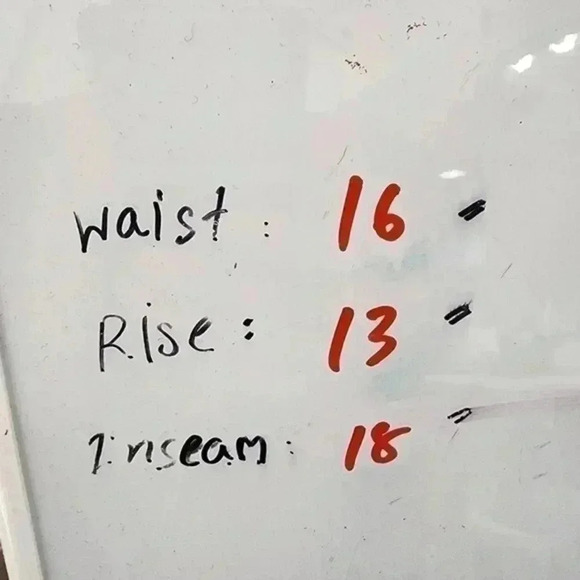 Waist: 16"
Rise: 13"
Inseam: 18"